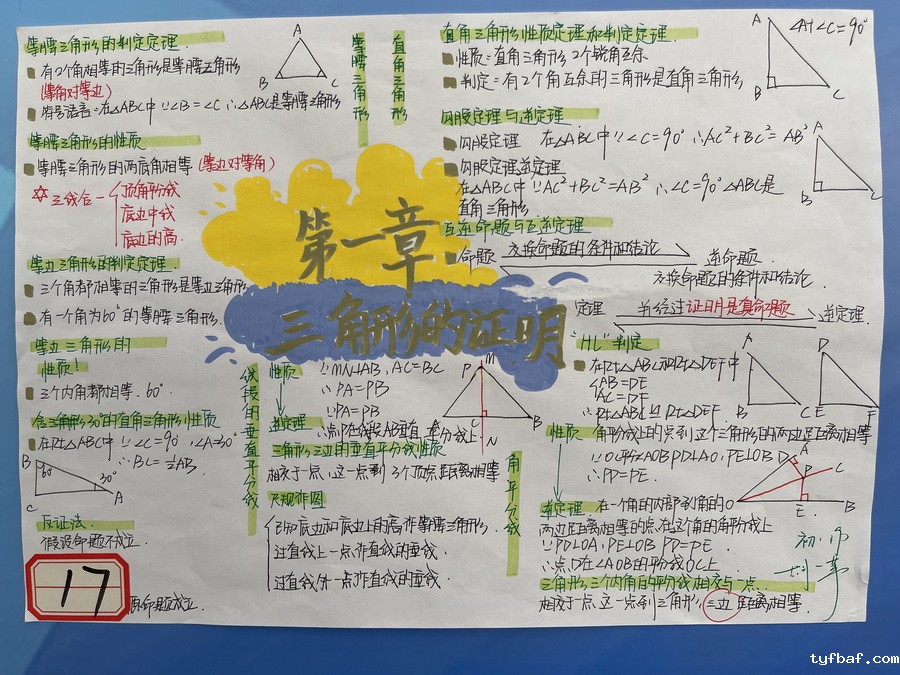 等腰三角形的判定定理.
有2个角相等的三角形是等腰三角形
(等角对等边)
符号语言:在△ABC中∵∠B=∠C∴△ABC是等腰三角形
A
B
C
等腰三角形的性质
等腰三角形的两底角相等(等边对等角)
三线合一
顶角平分线
底边中线
底边的高.
等边三角形的判定定理.
三个角都相等的三角形是等边三角形
有一个角为60°的等腰三角形.
等边三角形的
性质!
三个内角都相等.60°
含30°的直角三角形性质
在Rt△ABC中∵∠C=90°,∠A=30°
∴BC=½AB.
B
60°
30°
C
A
反证法.
假设命题不成立.
17
原命题成立.
等腰三角形
直角三角形
第一章.
三角形的证明
线段的垂直平分线
性质
∵MN⊥AB,AC=BC
∴PA=PB
逆定理
∵PA=PB
∴点P在线段AB垂直平分线上
M
P
A
C
B
N
三角形三边的垂直平分线性质
相交于一点,这一点到3个顶点距离相等
尺规作图
已知底边和底边上的高,作等腰三角形.
过直线上一点作直线的垂线.
过直线外一点作直线的垂线.
角平分线
直角三角形性质定理和判定定理.
性质:直角三角形2个锐角互余
判定:有2个角互余的三角形是直角三角形
A
∠A+∠C=90°
B
C
勾股定理与逆定理
勾股定理 在△ABC中∵∠C=90°∴AC²+BC²=AB²
勾股定理逆定理
在△ABC中∵AC²+BC²=AB²∴∠C=90°△ABC是
直角三角形
A
B
C
互逆命题与互逆定理
命题 交换命题的条件和结论 逆命题.
交换命题的条件和结论.
定理 当经过证明是真命题 逆定理.
"HL"判定
在Rt△ABC和Rt△DEF中
AB=DE
AC=DF
∴Rt△ABC≌Rt△DEF.
A
B
C
D
E
F
性质 角平分线上的点到这个三角形的两边距离相等
∵OC平分∠AOB PD⊥AO,PE⊥OB
∴PD=PE.
A
D
P
C
E
B
逆定理.在一个角的内部到角的
两边距离相等的点,在这个角的角平分线上
∵PD⊥OA,PE⊥OB PD=PE.
∴点P在∠AOB的平分线OC上
三角形,三个内角的平分线相交与一点
相交于一点,这一点到三角形,三边距离相等.
tyfbaf.com